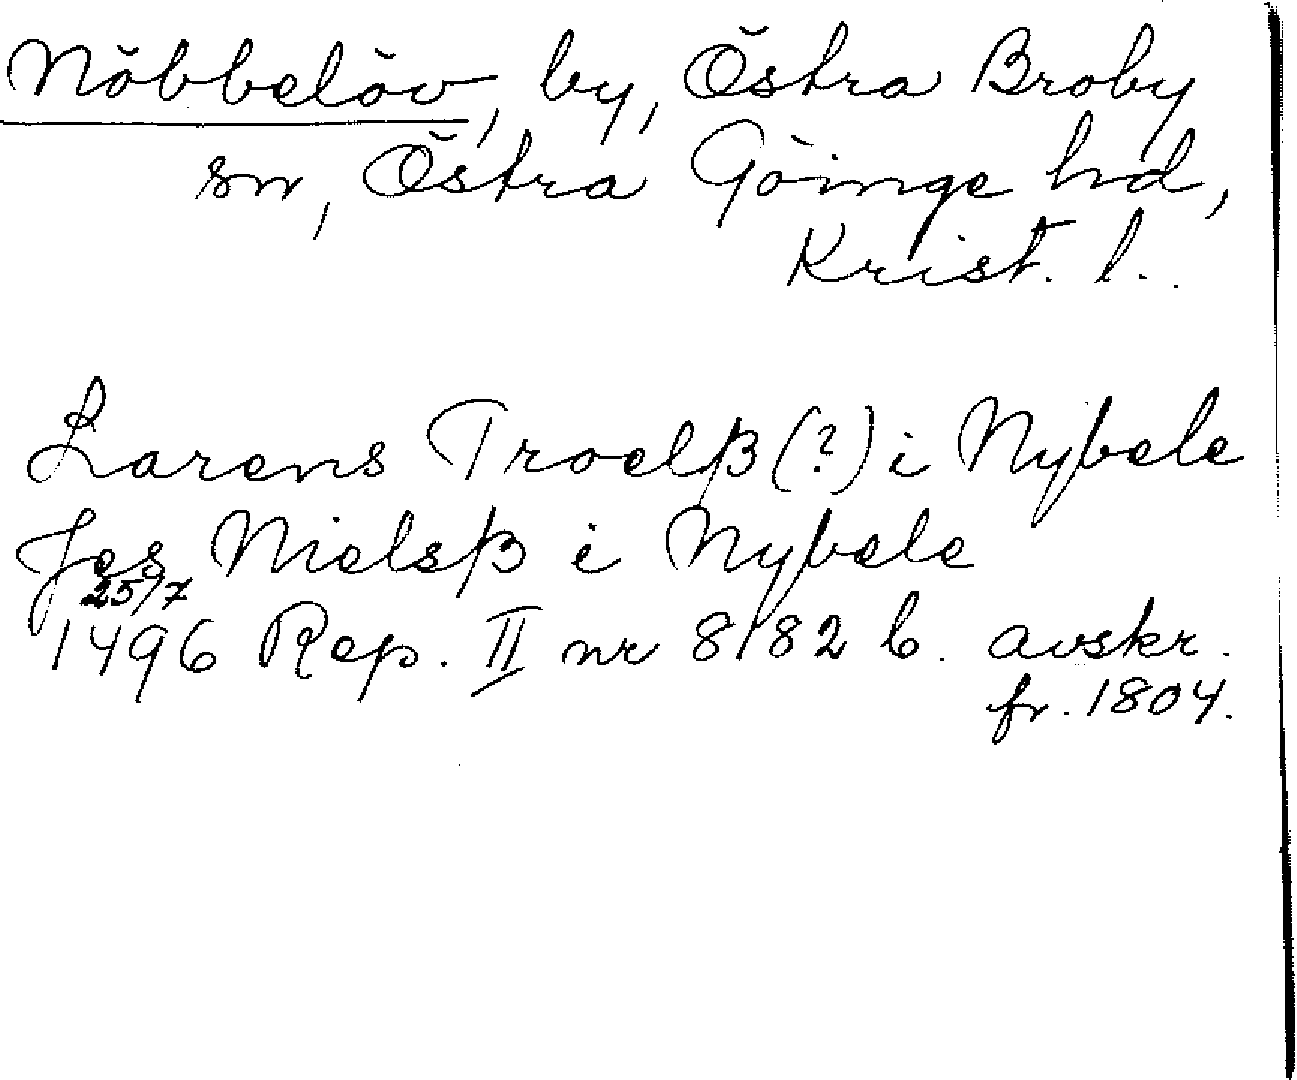 Nöbbelöv, by, Östra Broby
sn, Östra Göinge hd,
Krist. l.
Larens Troelß (?) i Nybele
Jes Nielsß i Nybele
25/7
1496 Rep. II nr 8182 b. avskr.
fr. 1804.